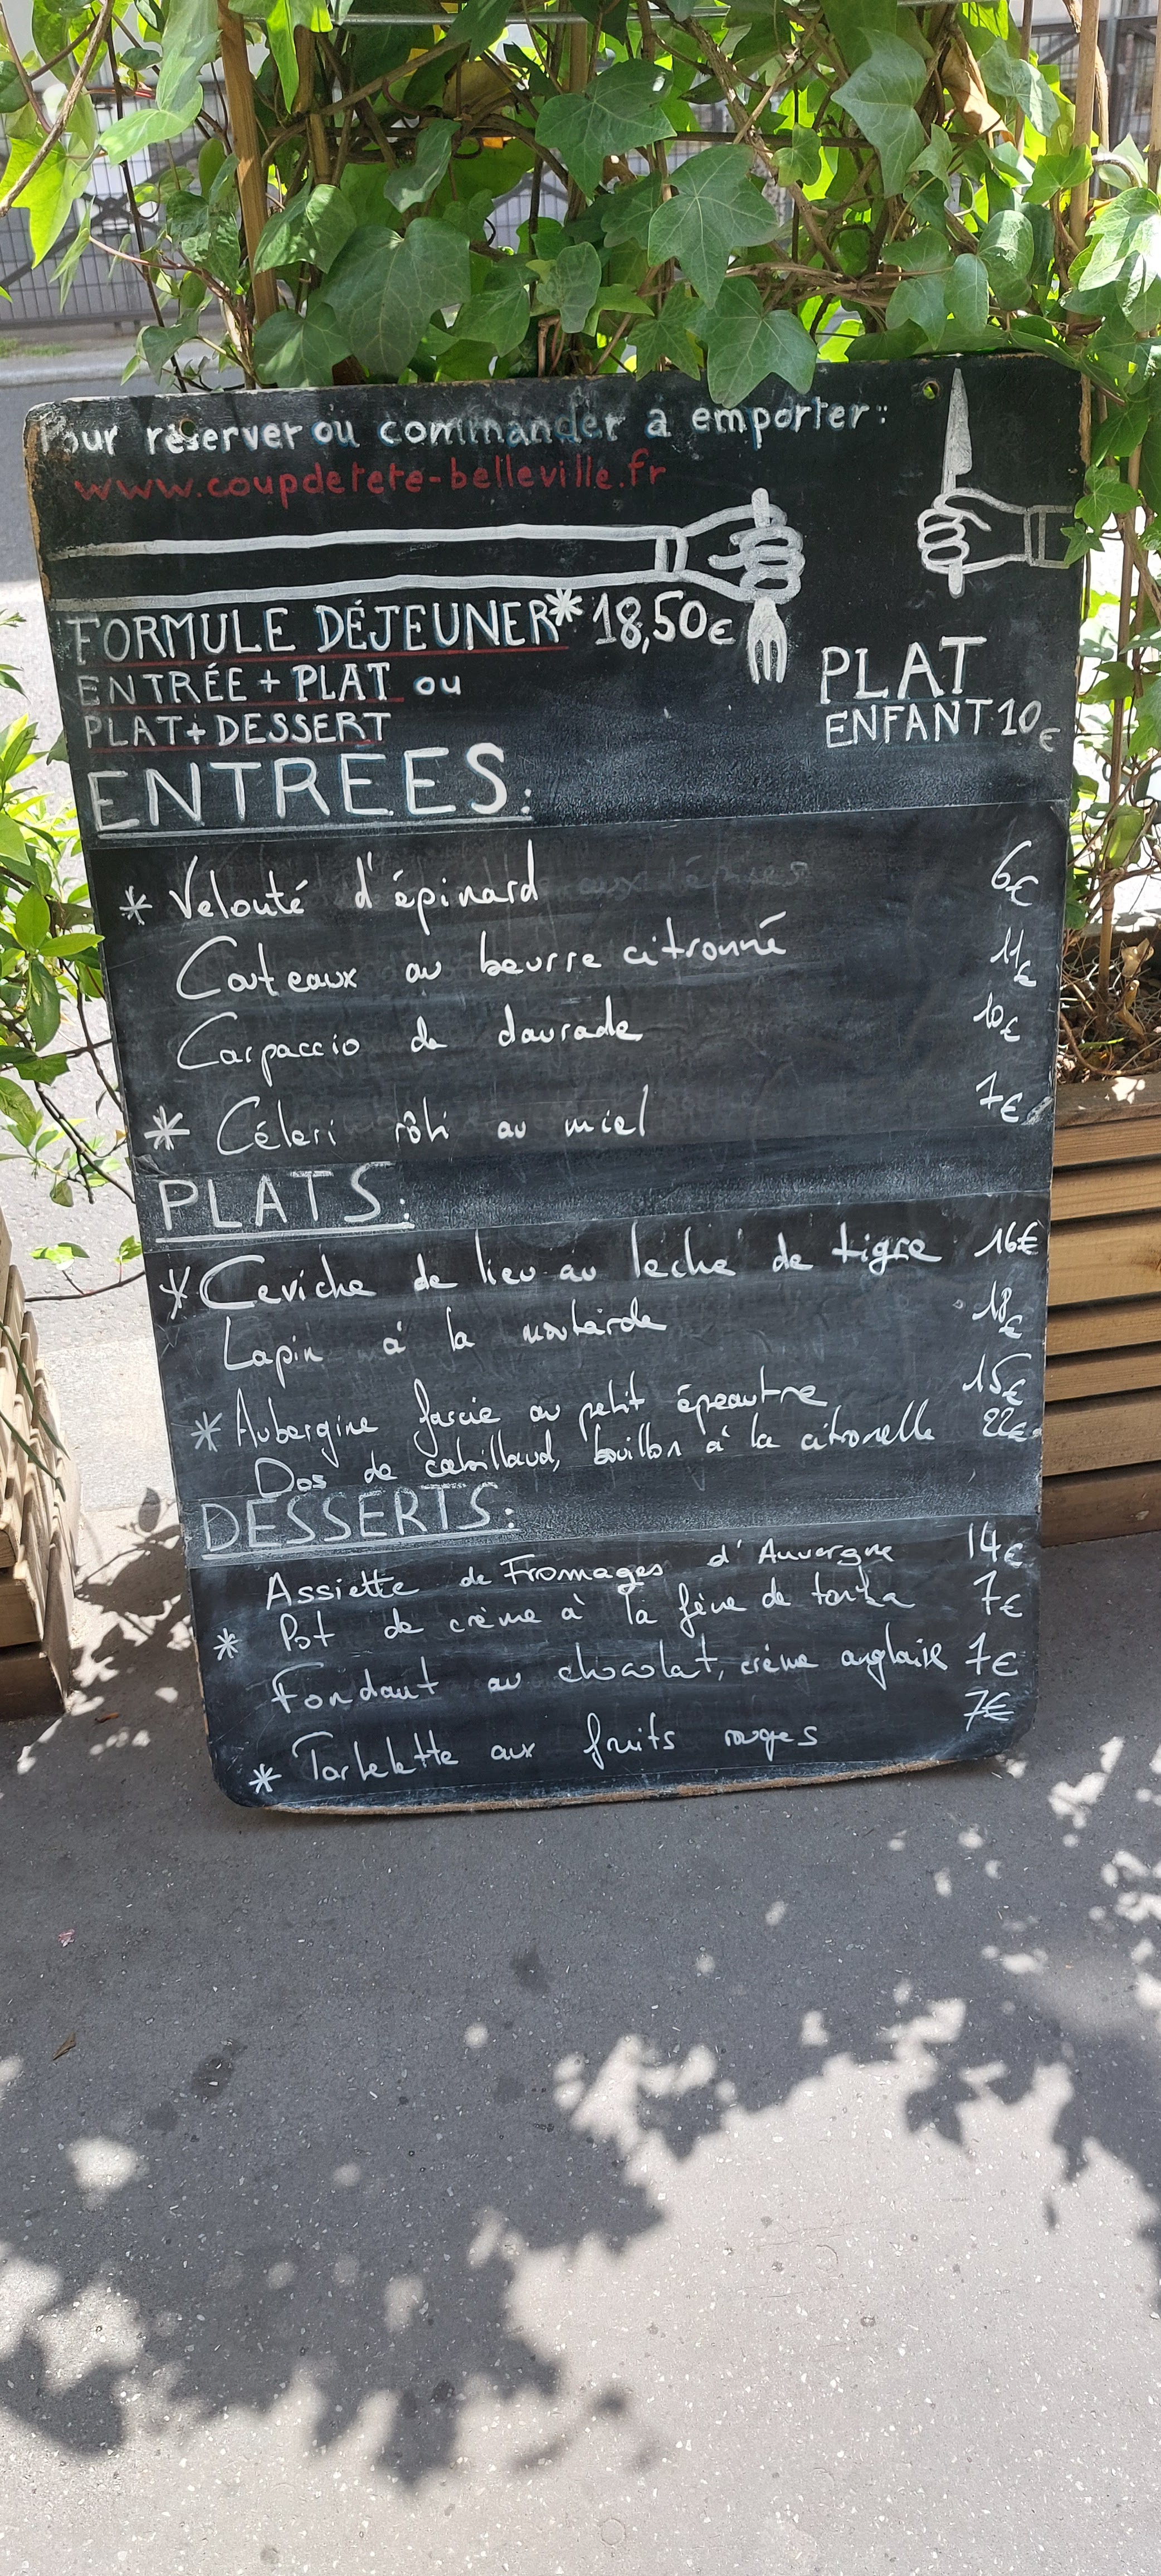 Pour réserver ou commander à emporter:
www.coupdetete-belleville.fr
FORMULE DÉJEUNER* 18,50€
ENTRÉE + PLAT ou
PLAT + DESSERT
PLAT
ENFANT 10€
ENTREES:
* Velouté d'épinard 6€
Couteaux au beurre citronné 11€
Carpaccio de daurade 10€
* Céleri rôti au miel 7€
PLATS:
* Ceviche de lieu au leche de tigre 16€
Lapin à la moutarde 18€
* Aubergine farcie au petit épeautre 15€
Dos de cabillaud, bouillon à la citronelle 22€
DESSERTS:
Assiette de Fromages d'Auvergne 14€
* Pot de crème à la fève de tonka 7€
Fondant au chocolat, crème anglaise 7€
* Tartelette aux fruits rouges 7€